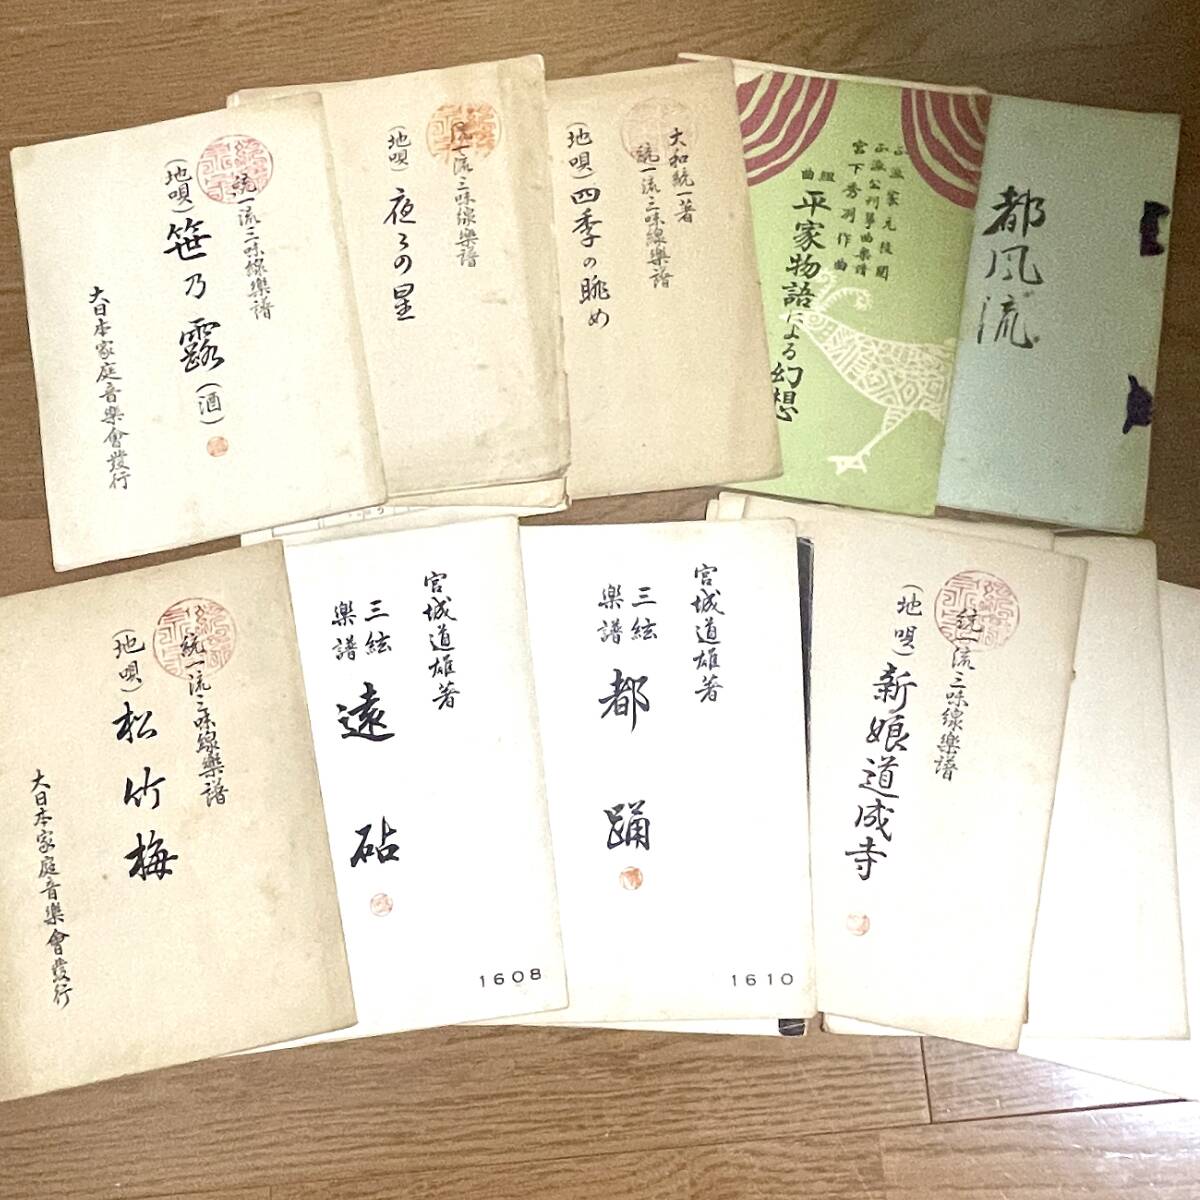 統一流三味線樂譜
(地唄)笹乃露(酒)
大日本家庭音樂會發行
統一流三味線樂譜
(地唄)夜々の星
大和統一著
統一流三味線樂譜
(地唄)四季の眺め
正派家元校閲
正派公刊箏曲樂譜
宮下秀冽作曲
組曲
平家物語による幻想
都風流
統一流三味線樂譜
(地唄)松竹梅
大日本家庭音樂會發行
宮城道雄著
三絃
樂譜
遠砧
1608
宮城道雄著
三絃
樂譜
都踊
1610
統一流三味線樂譜
(地唄)新娘道成寺